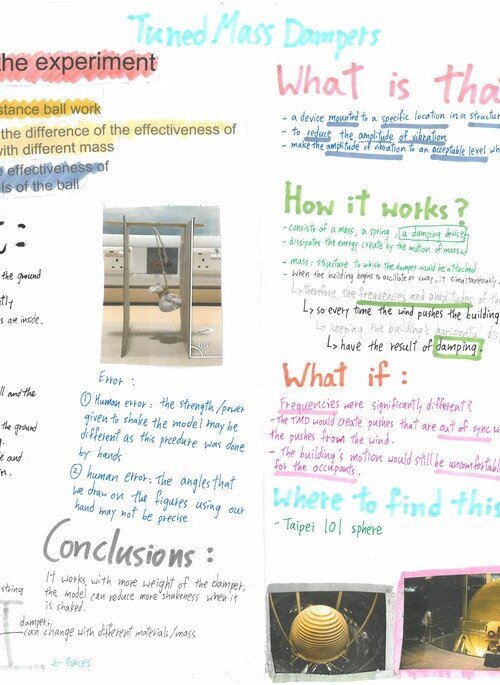 Tuned Mass Dampers
the experiment
stance ball work
the difference of the effectiveness of
with different mass
e effectiveness of
ls of the ball
the ground
are inside.
ll and the
the ground
and
string
Error :
① Human error : the strength/power
given to shake the model may be
different as this precedure was done
by hands
② human error : the angles that
we draw on the figures using our
hand may not be precise
Conclusions :
It works, with more weight of the damper,
the model can reduce more shakeness when it
is shaked.
damper:
can change with different materials/mass
← Forces
What is tha
- a device mounted to a specific location in a structur
- to reduce the amplitude of vibration
- make the amplitude of vibration to an acceptable level wh
How it works?
- consists of a mass, a spring, a damping device
- dissipates the energy create by the motion of mass
- mass : structure to which the damper would be attached
- when the building begins to oscillate or sway, it simultaneously
↳ Therefore, the frequencies and amplitudes of th
↳ so every time the wind pushes the building
↳ keeping the building's horizontal dis
↳ have the result of damping.
What if :
Frequencies were significantly different?
- The TMD would create pushes that are out of sync w
the pushes from the wind.
- The building's motion would still be uncomfortabl
for the occupants.
Where to find this
- Taipei 101 sphere